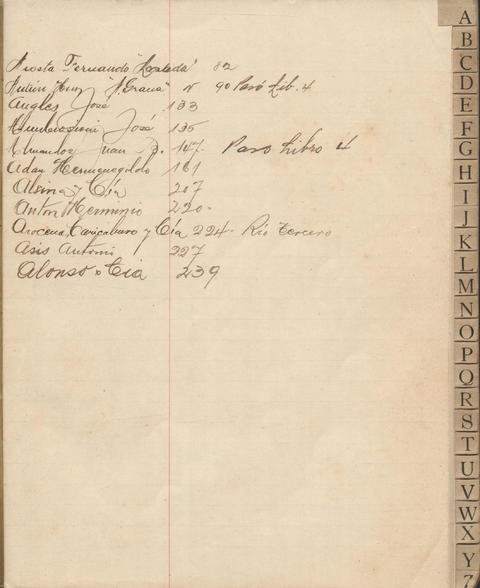 Acosta Fernando "Posada" 82
"J. Grana" 90 Pasó Lib. 4
Angles José 133
José 135
Juan B. 147. Paso Libro 4
Adan Hermenegildo 161
Alsina y Cía 207
Anton Herminio 220.
Arocena, y Cía 224. Rio Tercero
Asis Antonio 227
Alonso y Cia 239
A
B
C
D
E
F
G
H
I
J
K
L
M
N
O
P
Q
R
S
T
U
V
W
X
Y
Z